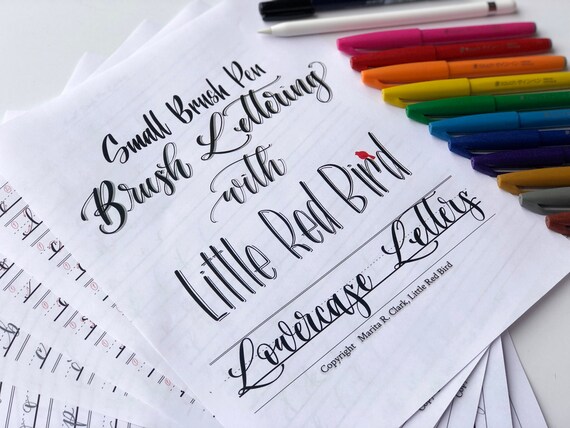 Small Brush Pen
Brush Lettering
with
Little Red Bird
Lowercase Letters
Copyright Marita R. Clark, Little Red Bird